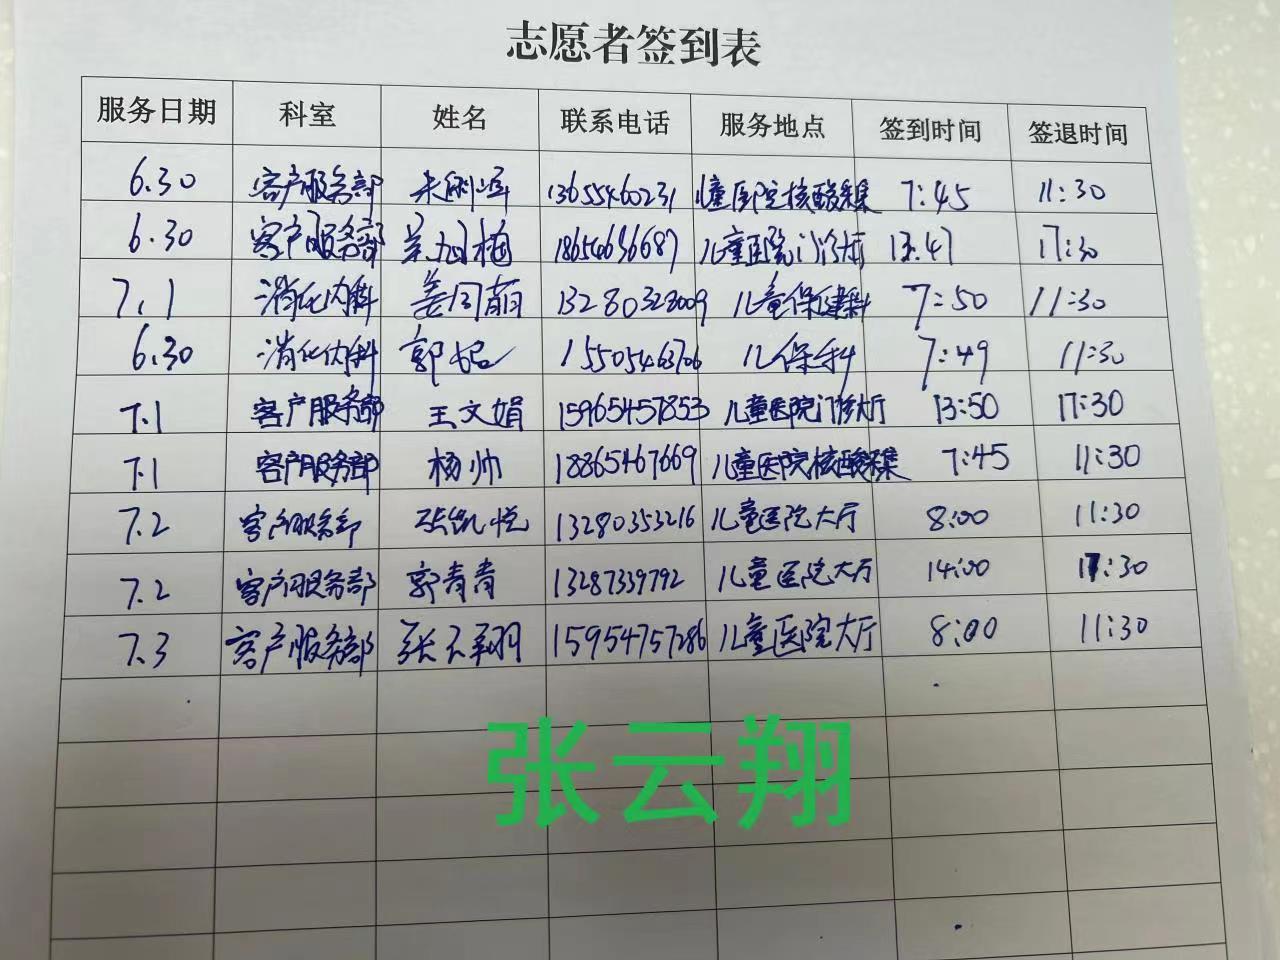 志愿者签到表
服务日期 科室 姓名 联系电话 服务地点 签到时间 签退时间
6.30 客户服务部 13655460231 儿童医院核酸采集 7:45 11:30
6.30 客户服务部 18654636687 儿童医院门诊大厅 13:47 17:30
7.1 消化内科 姜同萌 13280328009 儿童保健科 7:50 11:30
6.30 消化内科 郭 15505463706 儿保科 7:49 11:30
7.1 客户服务部 王文娟 15965457853 儿童医院门诊大厅 13:50 17:30
7.1 客户服务部 杨帅 18865467669 儿童医院核酸采集 7:45 11:30
7.2 客户服务部 张凯悦 13280353216 儿童医院大厅 8:00 11:30
7.2 客户服务部 郭青青 13287339792 儿童医院大厅 14:00 17:30
7.3 客户服务部 张云翔 15954757286 儿童医院大厅 8:00 11:30
张云翔